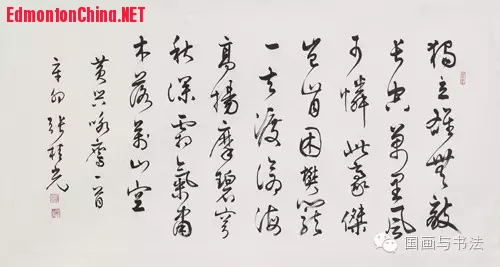 EdmontonChina.NET
獨立雄無敵
長空萬里風
可憐此豪傑
豈肯困樊籠
一去渡滄海
高揚摩碧穹
秋深霜氣肅
木落萬山空
黃興咏鷹一首
辛卯張桂光
国画与书法